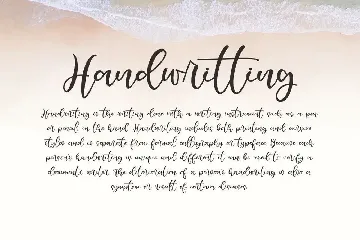 Handwritting
Handwriting is the writing done with a writing instrument, such as a pen
or pencil, in the hand. Handwriting includes both printing and cursive
styles and is separate from formal calligraphy or typeface. Because each
person's handwriting is unique and different, it can be used to verify a
document's writer. The deterioration of a person's handwriting is also a
symptom or result of certain diseases.